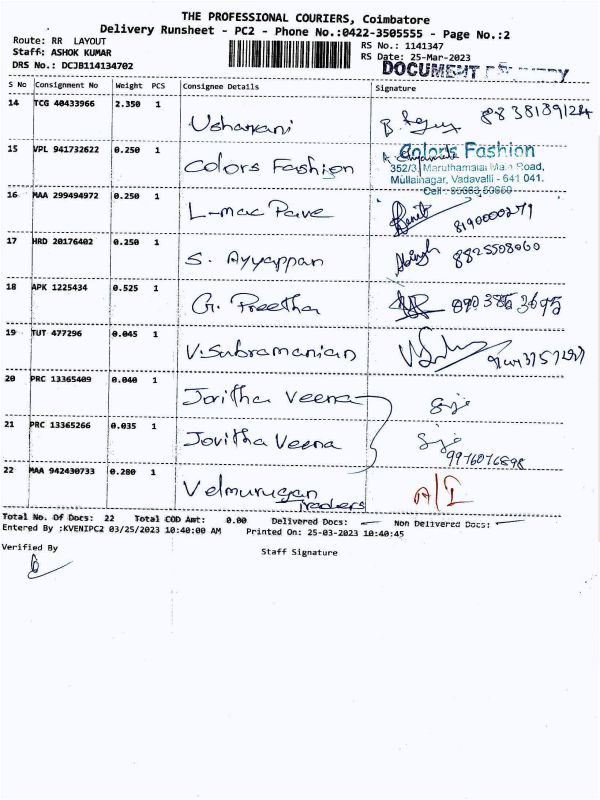 THE PROFESSIONAL COURIERS, Coimbatore
Delivery Runsheet - PC2 - Phone No.:0422-3505555 - Page No.:2
Route: RR LAYOUT
Staff: ASHOK KUMAR
DRS No.: DCJB114134702
RS No.: 1141347
RS Date: 25-Mar-2023
DOCUMENT
S No Consignment No Weight PCS Consignee Details Signature
14 TCG 40433966 2.350 1 Usharani 8838139124
15 VPL 941732622 0.250 1 Colors Fashion
Colors Fashion
352/3, Maruthamalai Main Road,
Mullainagar, Vadavalli - 641 041.
Cell :
16 MAA 299494972 0.250 1 L-mac Pave
17 HRD 20176402 0.250 1 S. Ayyappan 8825508060
18 APK 1225434 0.525 1 G. Preetha
19 TUT 477296 0.045 1 V. Subramanian
20 PRC 13365409 0.040 1 Jovitha Veena
21 PRC 13365266 0.035 1 Jovitha Veena
22 MAA 942430733 0.280 1 Velmurugan Traders A/I
Total No. Of Docs: 22 Total COD Amt: 0.00 Delivered Docs: Non Delivered Docs:
Entered By :KVENIPC2 03/25/2023 10:40:00 AM Printed On: 25-03-2023 10:40:45
Verified By
Staff Signature